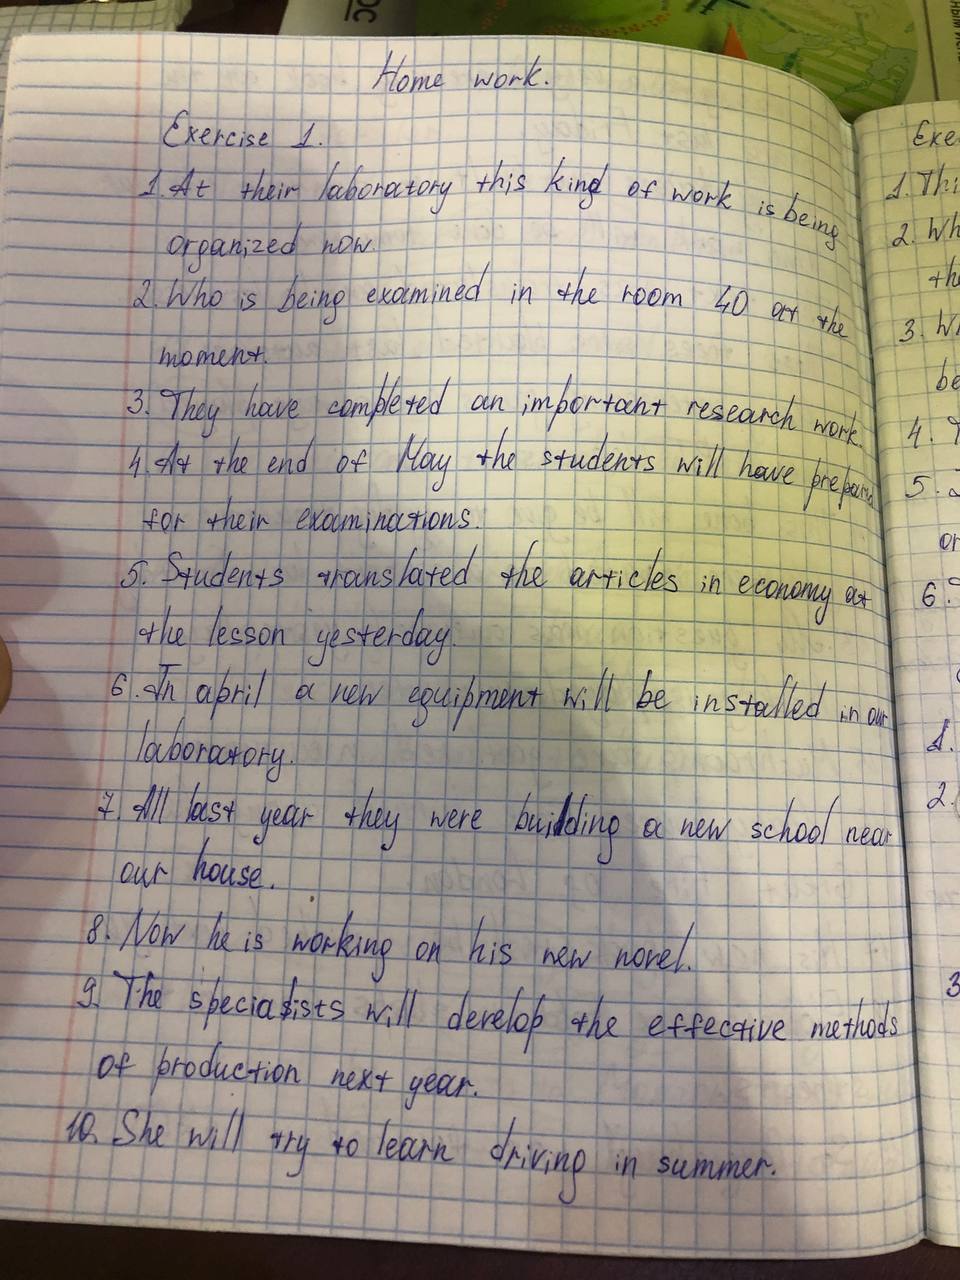 ОС
Home work.
Exercise 1.
1. At their laboratory this kind of work is being
organized now
2. Who is being examined in the room 40 at the
moment.
3. They have completed an important research work.
4. At the end of May the students will have prepared
for their examinations.
5. Students translated the articles in economy at
the lesson yesterday.
6. In april a new equipment will be installed in our
laboratory.
7. All last year they were building a new school near
our house.
8. Now he is working on his new novel.
9. The specialists will develop the effective methods
of production next year.
10. She will try to learn driving in summer.
Exe
1. Thi
2. Wh
the
3. Wh
be
4. T
5.
or
6.
1.
2.
3